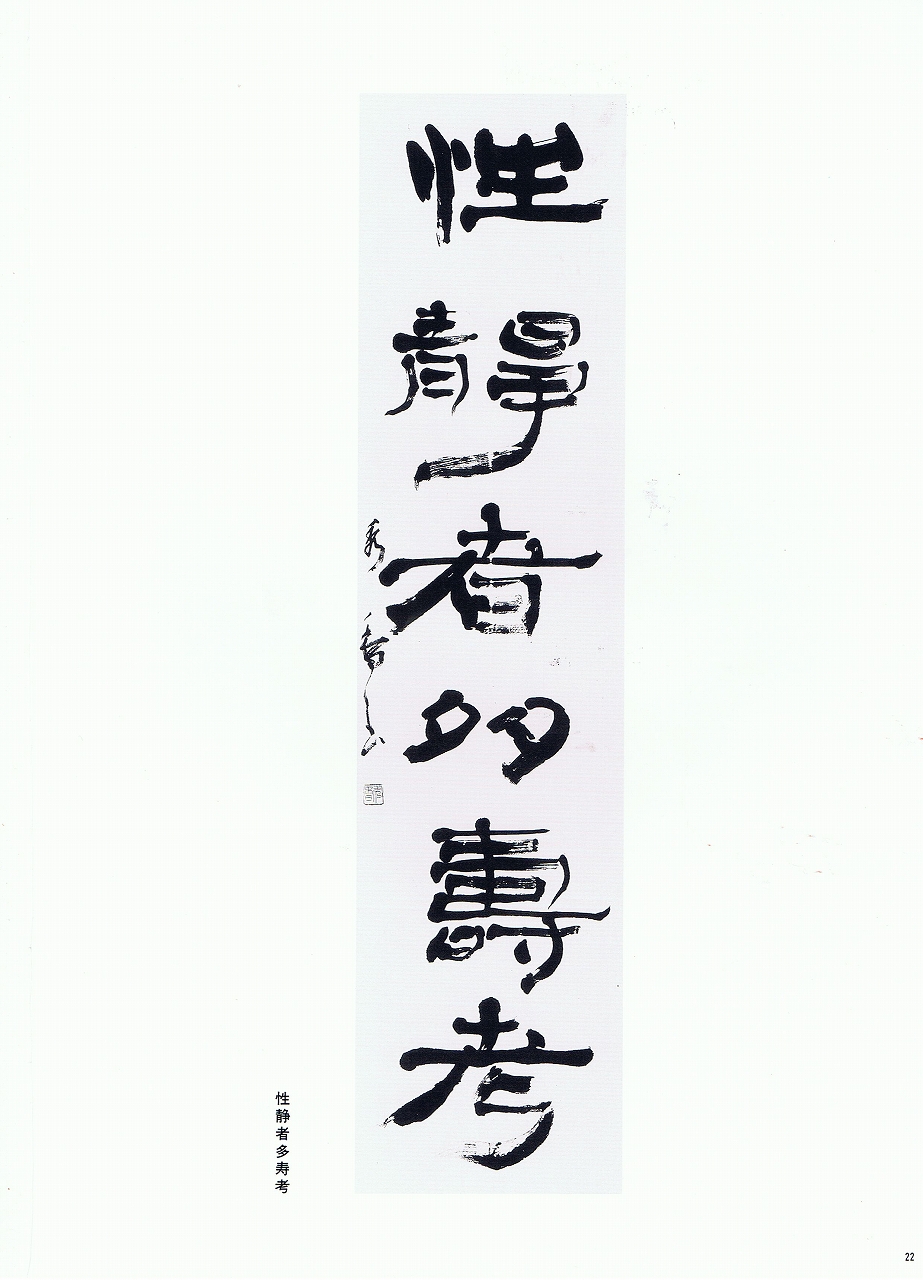 性靜者多壽考
性静者多寿考
22